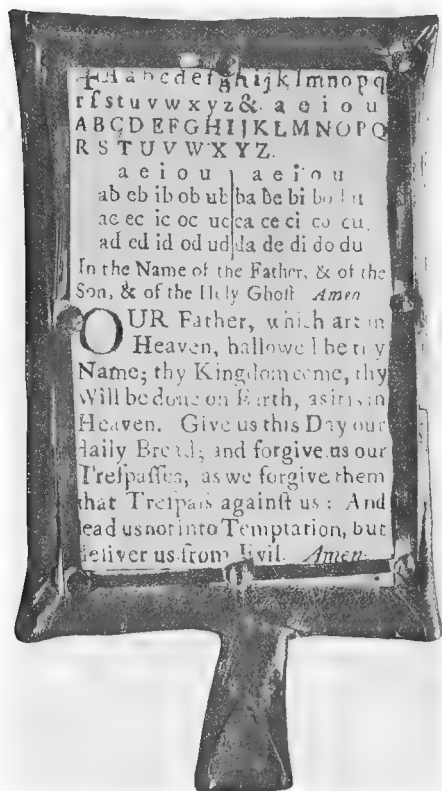 ✠Aabcdefghijklmnopq
rſstuvwxyz& a e i o u
ABCDEFGHIJKLMNOPQ
RSTUVWXYZ.
a e i o u a e i o u
ab eb ib ob ub ba be bi bo bu
ac ec ic oc uc ca ce ci co cu
ad ed id od ud da de di do du
In the Name of the Father, & of the
Son, & of the Holy Ghoſt Amen
OUR Father, which art in
Heaven, hallowed be thy
Name; thy Kingdom come, thy
Will be done on Earth, as it is in
Heaven. Give us this Day our
daily Bread; and forgive us our
Treſpaſſes, as we forgive them
that Treſpaſs againſt us: And
lead us not into Temptation, but
deliver us from Evil. Amen.